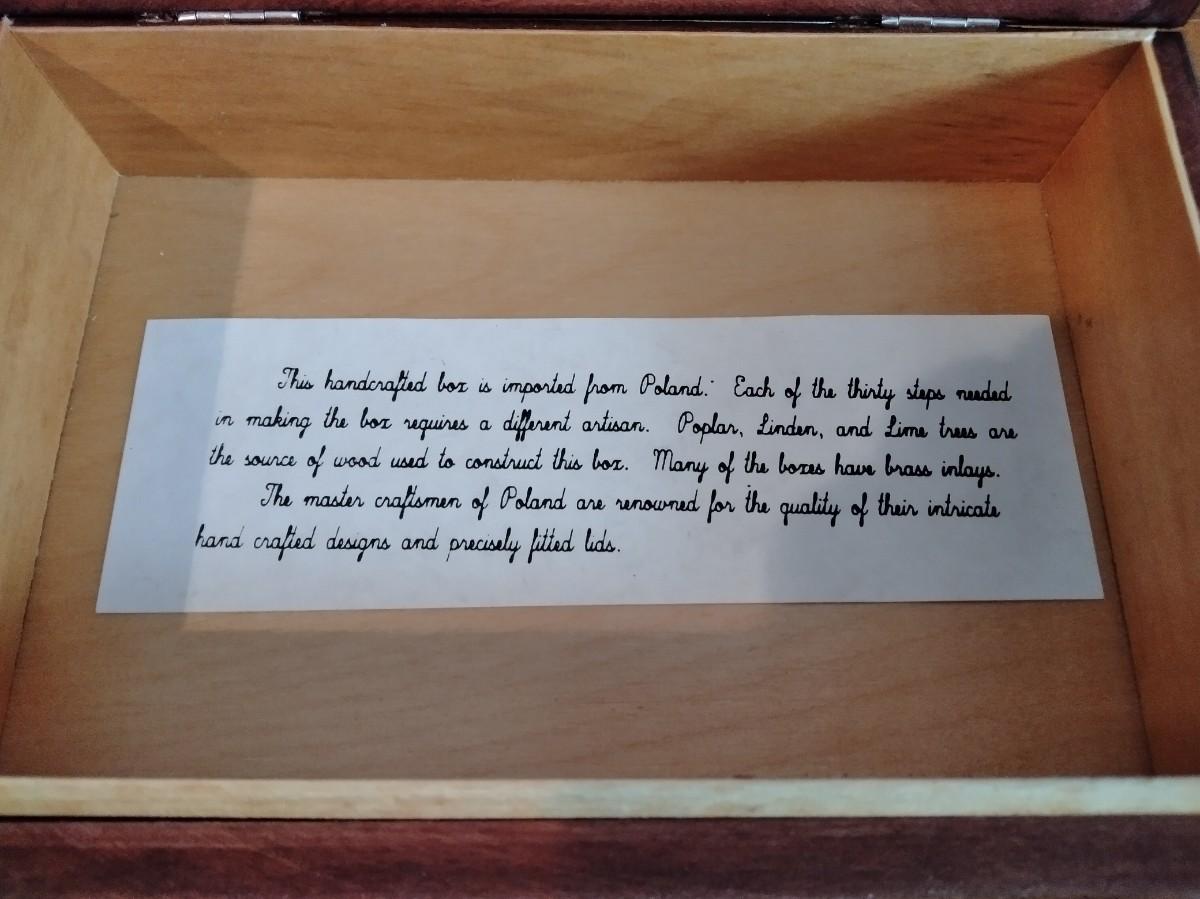 This handcrafted box is imported from Poland. Each of the thirty steps needed
in making the box requires a different artisan. Poplar, Linden, and Lime trees are
the source of wood used to construct this box. Many of the boxes have brass inlays.
The master craftsmen of Poland are renowned for the quality of their intricate
hand crafted designs and precisely fitted lids.